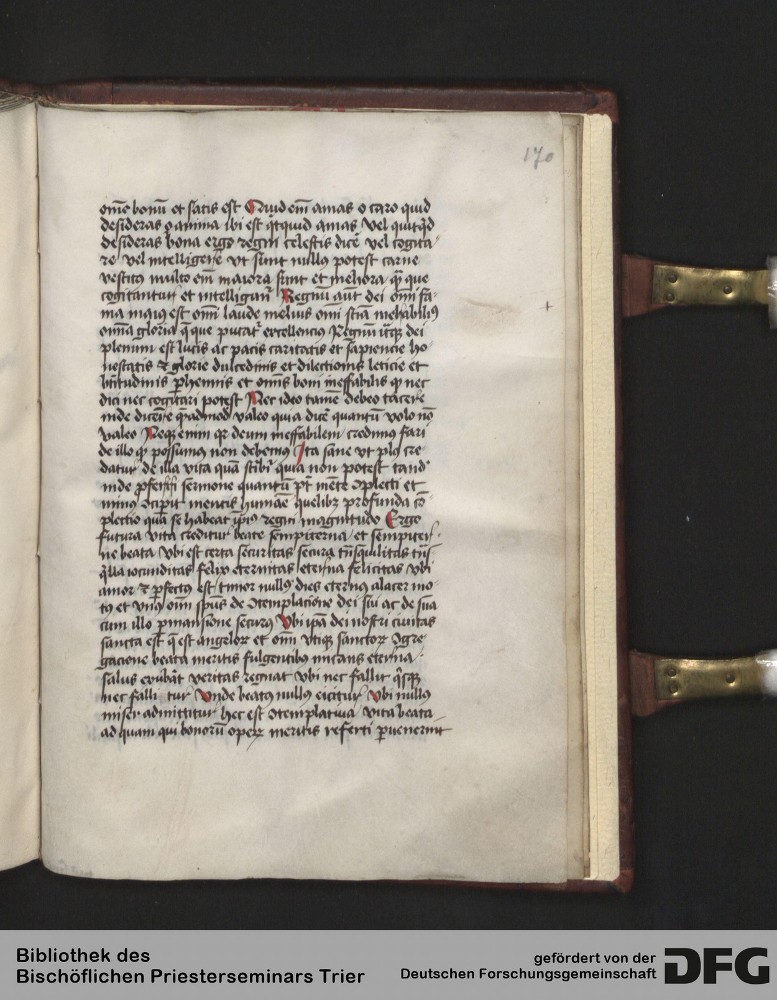 170
om̄e bonū et satis est Quid em̄ amas o caro quid
desideras o anima ibi est q̄tquid amas vel quitq̄d
desideras bona ergo regni celestis dicē vel cogita
re vel intelligere vt sunt nullus potest carne
vestitus multo em̄ maiora sunt et meliora q̄ que
cogitantur et intelligunt̄ Regnū aūt dei om̄i fa
ma maius est om̄i laude melius om̄i sciā meliabilis
om̄ia gloria que putat̄ excellencius Regnum itaq dei
plenum est lucis ac pacis caritatis et sapiencie ho
nestatis et glorie dulcedinis et dilectionis leticie et
btitudinis phennis et om̄is boni ineffabilis q nec
dici nec cogitari potest Nec ideo tamē debeo tacere
inde dicere q̄admod valeo quia dicē quantū volo nō
valeo Neque enim qr deum ineffabilem credimus fari
de illo q possumus non debemus Ita sane vt plus cre
datur de illa vita quā scribi quia non potest tand
inde proferri sermone quantū pt mēte ɔplecti et
minus ɔcipit mentis humāe quelibz profunda cō
plectio quā se habeat ipius regni magnitudo Ergo
futura vita creditur beate sempiterna et sempiter
ne beata Vbi est certa securitas secura tn̄quilitas tn̄
q̄lla iocunditas felix eternitas eterna felicitas vbi
amor et pfectus est timor nullus dies eternus alacer mo
tus et vnus om̄i spūs de ɔtemplacione dei sui ac de sua
cum illo pmansione securus Vbi ipā dei nostri ciuitas
sancta est q̄ est angelor et om̄i vtiq sanctor ɔgre
gacione beata meritis fulgentibus micans eterna
salus exubāt veritas regnat vbi nec fallit q̄sq
nec falli tur Vnde beatus nullus eicitur Vbi nullus
miser admittitur hec est ɔtemplatiua vita beata
ad quam qui bonorū oper meritis referti puenerint
Bibliothek des
Bischöflichen Priesterseminars Trier
gefördert von der
Deutschen Forschungsgemeinschaft
DFG